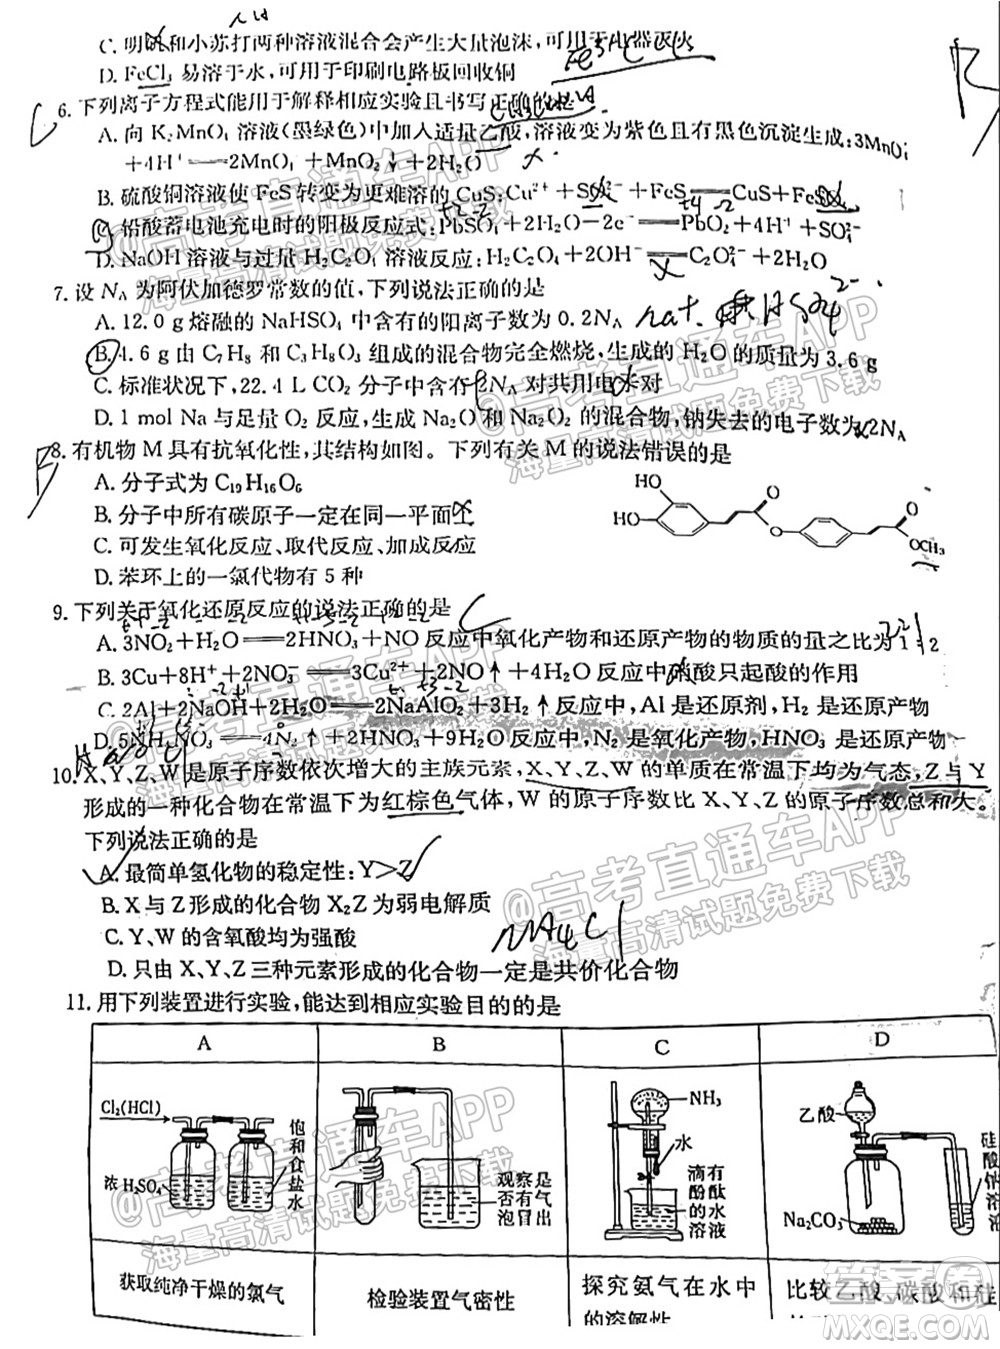 C. 明矾和小苏打两种溶液混合会产生大量泡沫,可用于电器灭火
D. FeCl₃ 易溶于水,可用于印刷电路板回收铜
6. 下列离子方程式能用于解释相应实验且书写正确的是
A. 向 K₂MnO₄ 溶液(墨绿色)中加入适量乙酸,溶液变为紫色且有黑色沉淀生成:3MnO₄²⁻
+4H⁺══2MnO₄⁻+MnO₂↓+2H₂O
B. 硫酸铜溶液使 FeS 转变为更难溶的 CuS:Cu²⁺+SO₄²⁻+FeS══CuS+FeSO₄
C. 铅酸蓄电池充电时的阳极反应式:PbSO₄+2H₂O−2e⁻══PbO₂+4H⁺+SO₄²⁻
D. NaOH 溶液与过量 H₂C₂O₄ 溶液反应:H₂C₂O₄+2OH⁻══C₂O₄²⁻+2H₂O
7. 设 Nᴀ 为阿伏加德罗常数的值,下列说法正确的是
A. 12.0 g 熔融的 NaHSO₄ 中含有的阳离子数为 0.2Nᴀ
B. 4.6 g 由 C₇H₈ 和 C₃H₈O₃ 组成的混合物完全燃烧,生成的 H₂O 的质量为 3.6 g
C. 标准状况下,22.4 L CO₂ 分子中含有 2Nᴀ 对共用电子对
D. 1 mol Na 与足量 O₂ 反应,生成 Na₂O 和 Na₂O₂ 的混合物,钠失去的电子数为 2Nᴀ
8. 有机物 M 具有抗氧化性,其结构如图。下列有关 M 的说法错误的是
A. 分子式为 C₁₉H₁₆O₆
B. 分子中所有碳原子一定在同一平面上
C. 可发生氧化反应、取代反应、加成反应
D. 苯环上的一氯代物有 5 种
HO
HO
O
O
O
OCH₃
9. 下列关于氧化还原反应的说法正确的是
A. 3NO₂+H₂O══2HNO₃+NO 反应中氧化产物和还原产物的物质的量之比为
B. 3Cu+8H⁺+2NO₃⁻══3Cu²⁺+2NO↑+4H₂O 反应中硝酸只起酸的作用
C. 2Al+2NaOH+2H₂O══2NaAlO₂+3H₂↑反应中,Al 是还原剂,H₂ 是还原产物
D. 5NH₄NO₃══4N₂↑+2HNO₃+9H₂O 反应中,N₂ 是氧化产物,HNO₃ 是还原产物
10. X、Y、Z、W 是原子序数依次增大的主族元素,X、Y、Z、W 的单质在常温下均为气态,Z 与 Y
形成的一种化合物在常温下为红棕色气体,W 的原子序数比 X、Y、Z 的原子序数总和大。
下列说法正确的是
A. 最简单氢化物的稳定性:Y>Z
B. X 与 Z 形成的化合物 X₂Z 为弱电解质
C. Y、W 的含氧酸均为强酸
D. 只由 X、Y、Z 三种元素形成的化合物一定是共价化合物
NH₄Cl
11. 用下列装置进行实验,能达到相应实验目的的是
A
B
C
D
Cl₂(HCl)
浓 H₂SO₄
饱和食盐水
观察是否有气泡冒出
NH₃
水
滴有酚酞的水溶液
乙酸
Na₂CO₃
硅酸钠溶液
获取纯净干燥的氯气
检验装置气密性
探究氨气在水中
的溶解性
比较乙酸、碳酸和硅
@高考直通车APP
海量高清试题免费下载
@高考直通车APP
海量高清试题免费下载
@高考直通车APP
海量高清试题免费下载
@高考直通车APP
海量高清试题免费下载
@高考直通车APP
海量高清试题免费下载
答案圈
MXQE.COM